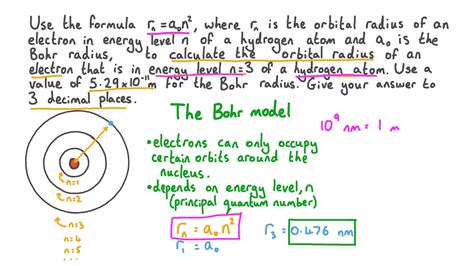 Use the formula rₙ = a₀n², where rₙ is the orbital radius of an
electron in energy level n of a hydrogen atom and a₀ is the
Bohr radius, to calculate the orbital radius of an
electron that is in energy level n=3 of a hydrogen atom. Use a
value of 5.29×10⁻¹¹m for the Bohr radius. Give your answer to
3 decimal places.
The Bohr model
10⁹ nm = 1 m
• electrons can only occupy
certain orbits around the
nucleus.
• depends on energy level, n
(principal quantum number)
rₙ = a₀n²
r₁ = a₀
r₃ = 0.476 nm
n=1
n=2
n=3
n=4
n=5